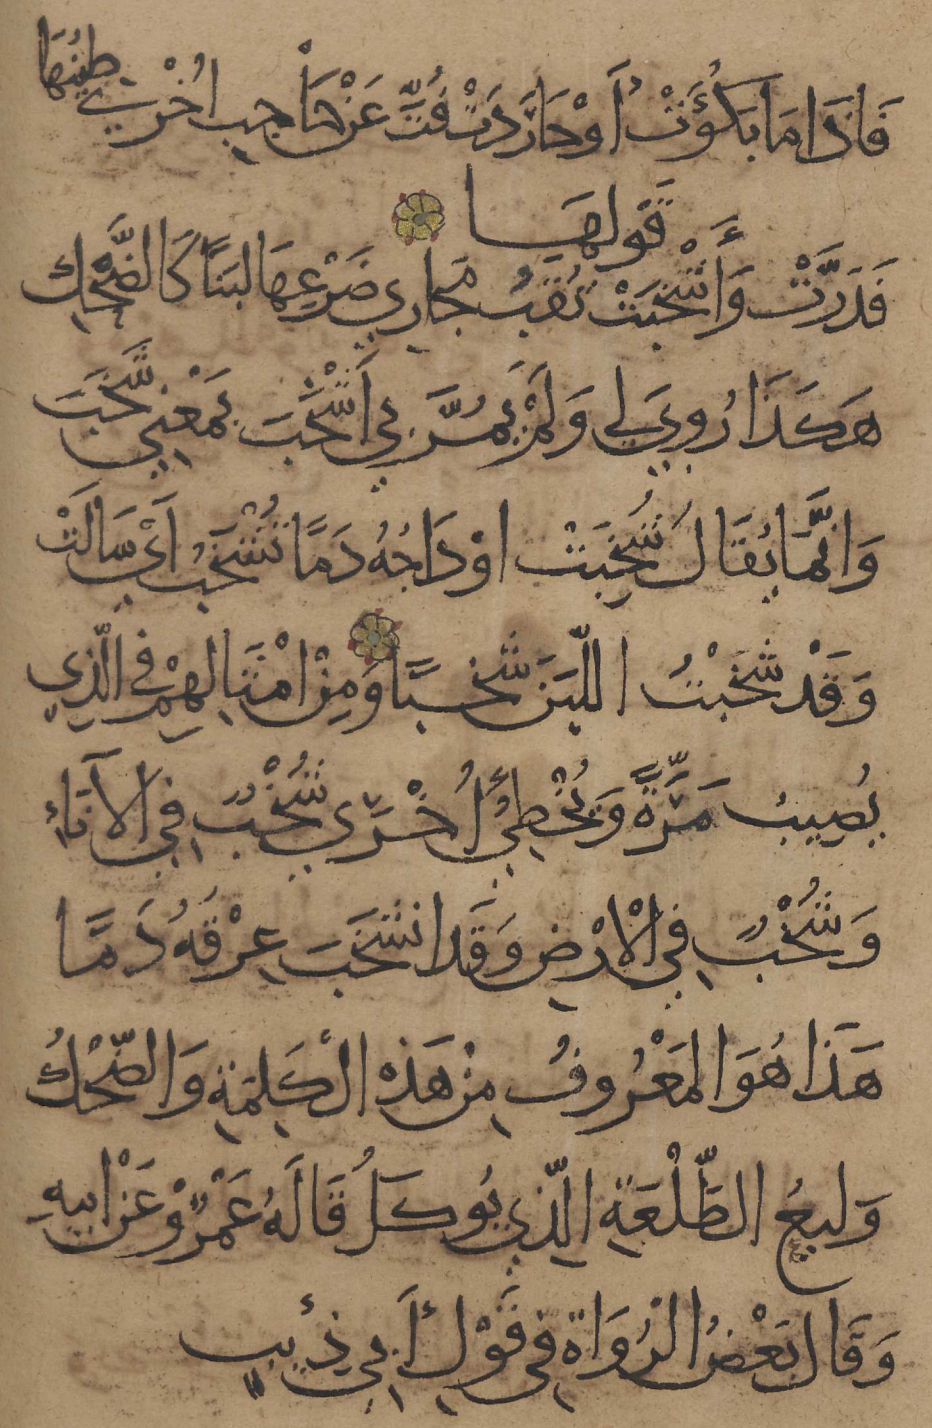 فَإِذَا مَا بَكُؤَتْ أَوْ حَارَدَتْ فُتَّ عَنْ حَاجِبِ أُخْرَى طِينُهَا
قَوْلهَا
فَدَرَّتْ وَأَنْشَخَبَتْ نُقَبُ مَجَارِي ضَرْعِهَا لَبَنًا كَالضَّحْكِ
هَكَذَا رُوِيَ لِي وَلَمْ يَمُرَّ بِي انْشَخَبَ بِمَعْنِى شَخَبَ
وَانَّمَا يُقَالُ شُخِبَتْ اوْدَاجُهُ دَمًا تُشْخَبُ أَيْ سَالَتْ
وَقَدْ شَخَبْتُ اللَّبَنَ شَخْبًا وَمِنْ امْثَالِهِمْ فِي الَّذِي
يُصِيبُ مَرَّةً وَيُخْطِئُ أُخْرَى شُخْبٌ فِي الآنَاءِ
وَشُخْبٌ فِي الْارْضِ وَقَد انشَخَبَ عِرْقُهُ دَمًا
هَذَا هُوَ المَعْرُوفُ مِنْ هَذِهِ الْكَلِمَةِ وَالضَّحْكُ
وَلِيعُ الطَّلْعَةِ الَّذِي يُوكَلُ قَالَهُ عَمْرٌو عَنْ ابِيهِ
وَقَالَ بَعْضُ الرُوَاةِ فِي قَوْلِ أَبِي ذُئَيبٍ